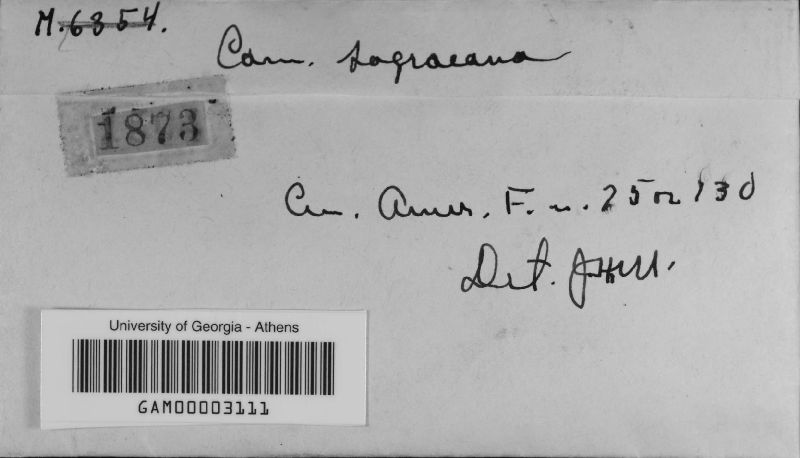 M. 6354.
Cam. sagraeana
1873
Cu. Amer. F. n. 25 or 130
Det. JHM.
University of Georgia - Athens
GAM00003111